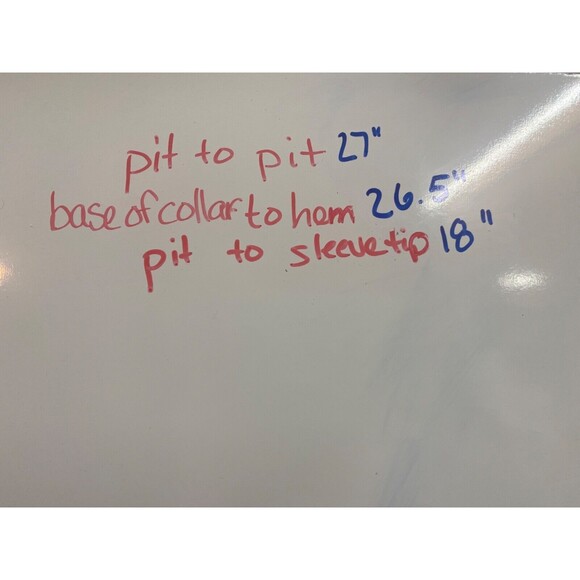 pit to pit 27"
base of collar to hem 26.5"
pit to sleeve tip 18"